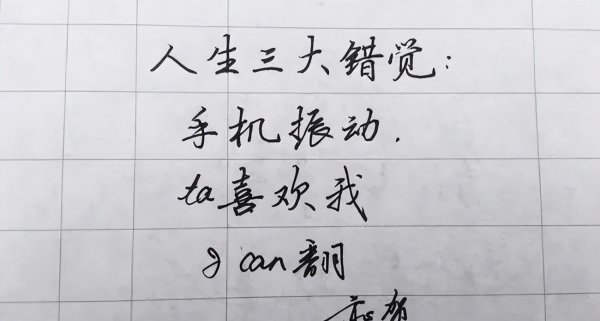 人生三大错觉:
手机振动.
ta喜欢我
g can翻